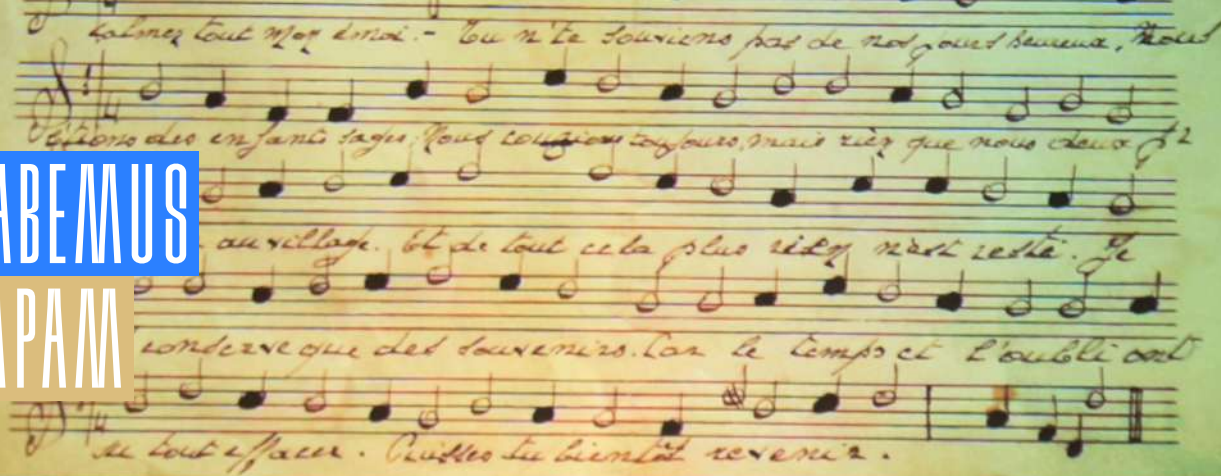 calmez tout mon émoi.- Tu n'te souviens pas de nos jours heureux, Nous
étions des enfants sages. Nous courions toujours, mais rien que nous deux
ABEMUS
au village. Et de tout cela plus rien n'est resté. Je
APAM
conserve que des souvenirs. Car le temps et l'oubli ont
tout effacer. Puisses tu bientôt revenir.